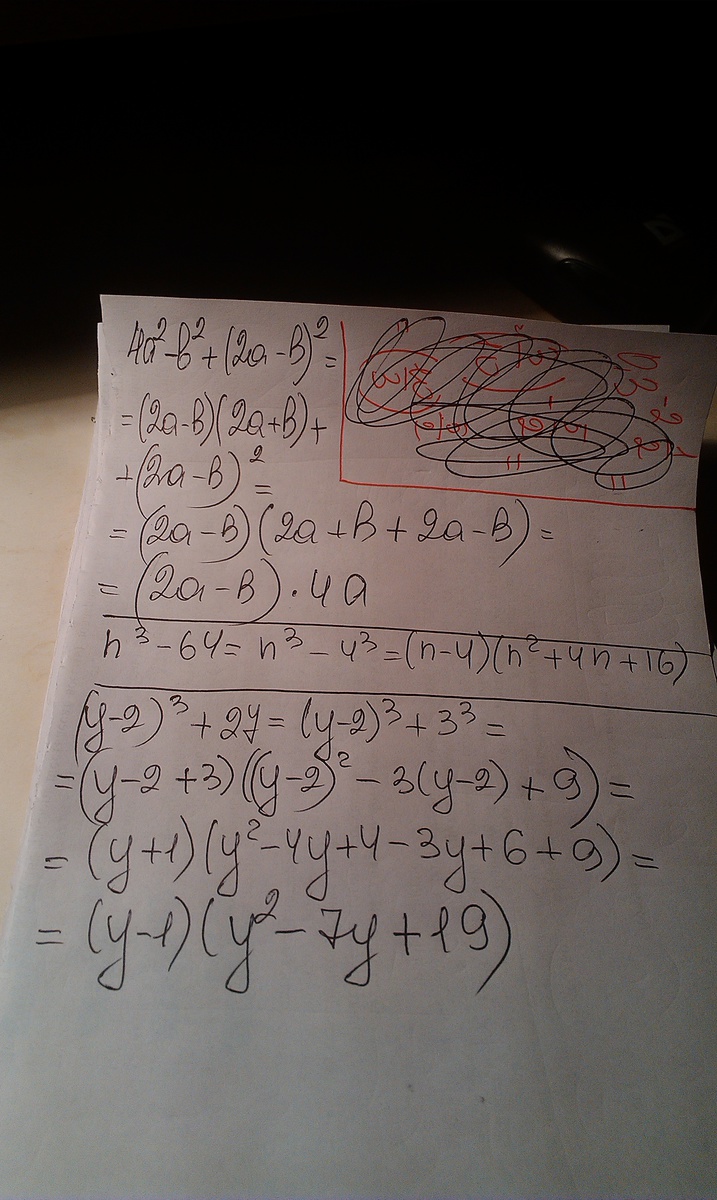 4a²-b²+(2a-b)²=
=(2a-b)(2a+b)+
+(2a-b)²=
=(2a-b)(2a+b+2a-b)=
=(2a-b)·4a
n³-64=n³-4³=(n-4)(n²+4n+16)
(y-2)³+27=(y-2)³+3³=
=(y-2+3)((y-2)²-3(y-2)+9)=
=(y+1)(y²-4y+4-3y+6+9)=
=(y-1)(y²-7y+19)